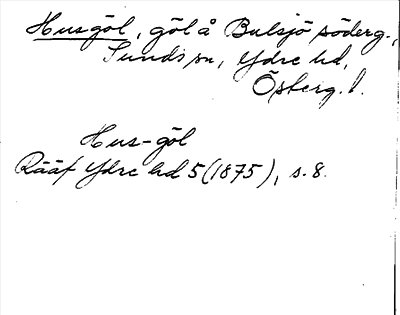 Husgöl, göl å Bulsjö söderg.,
Sunds sn, Ydre hd,
Österg. l.
Hus-göl
Rääf Ydre hd 5 (1875), s. 8.